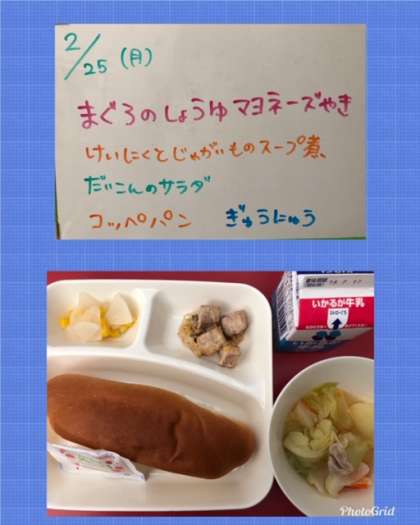 2/25 (月)
まぐろのしょうゆマヨネーズやき
けいにくとじゃがいものスープ煮
だいこんのサラダ
コッペパン ぎゅうにゅう
いかるが牛乳
PhotoGrid